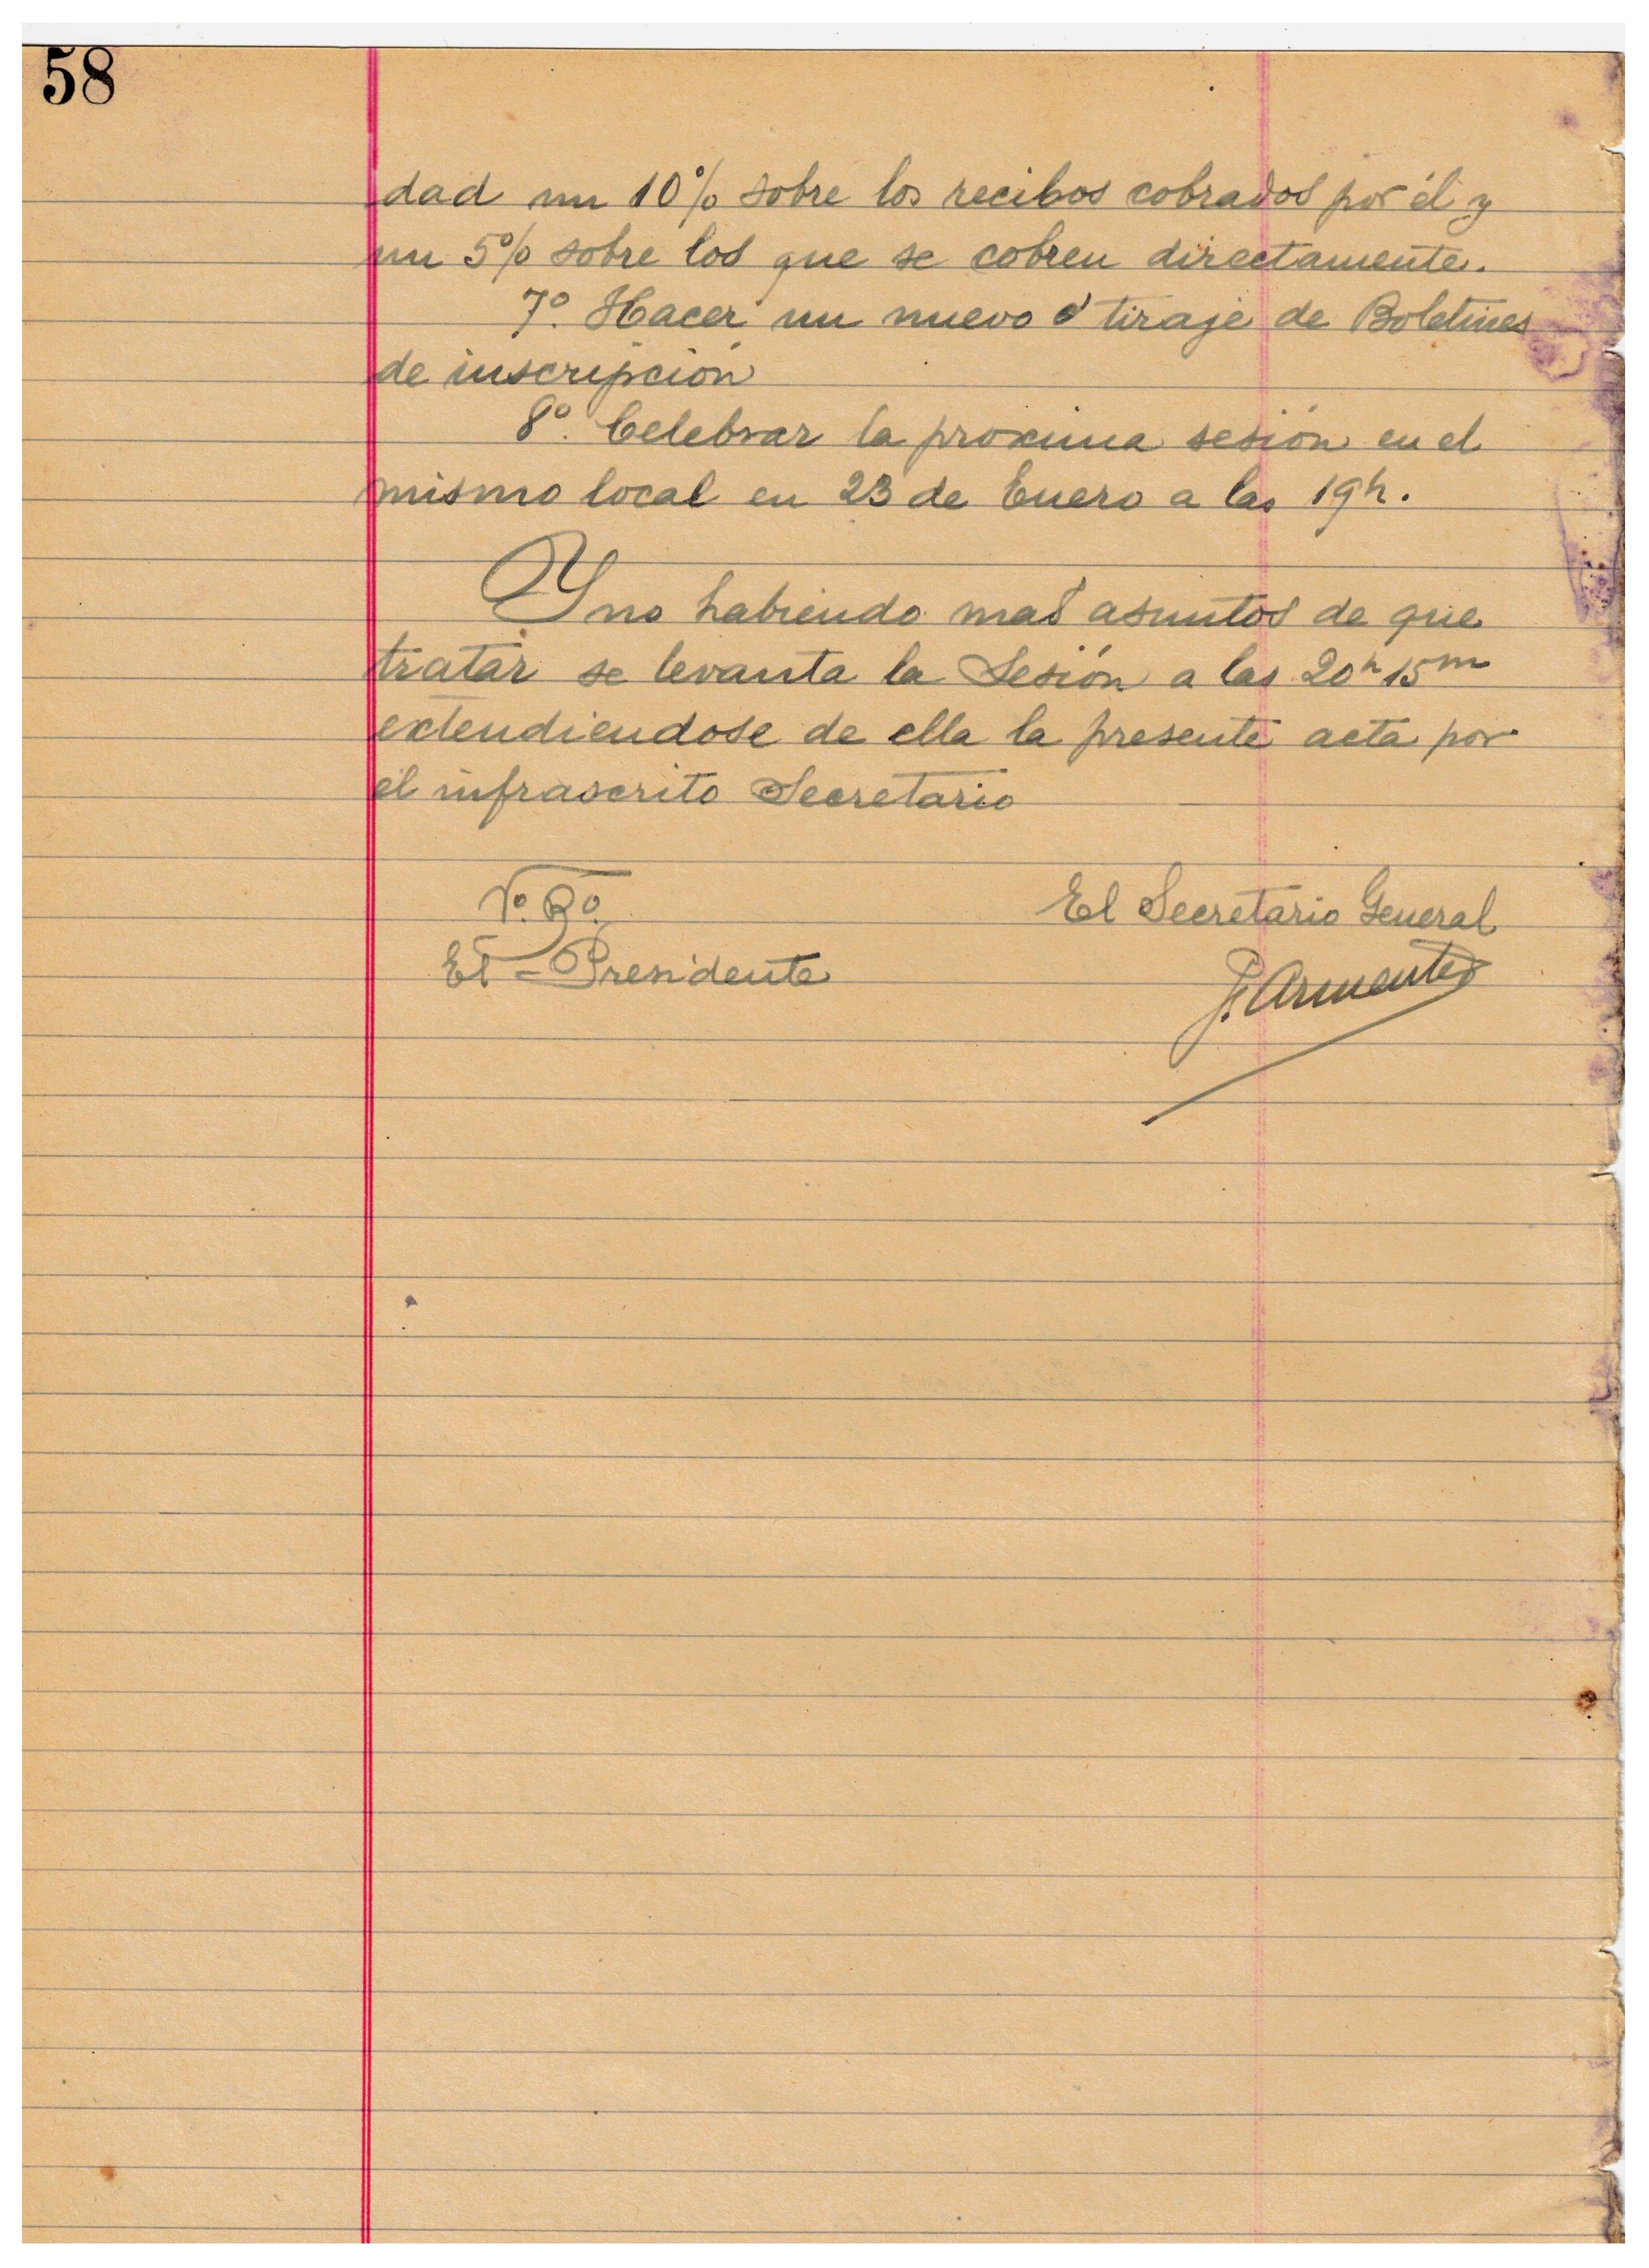 58
dad un 10% sobre los recibos cobrados por él y
un 5% sobre los que se cobren directamente.
7º. Hacer un nuevo tiraje de Boletines
de inscripción
8º. Celebrar la proxima sesión en el
mismo local en 23 de Enero a las 19h.
Y no habiendo mas asuntos de que
tratar se levanta la Sesión a las 20h 15m
extendiendose de ella la presente acta por
el infrascrito Secretario
Vº. Bº.
El Secretario General
El Presidente
J. Armenter